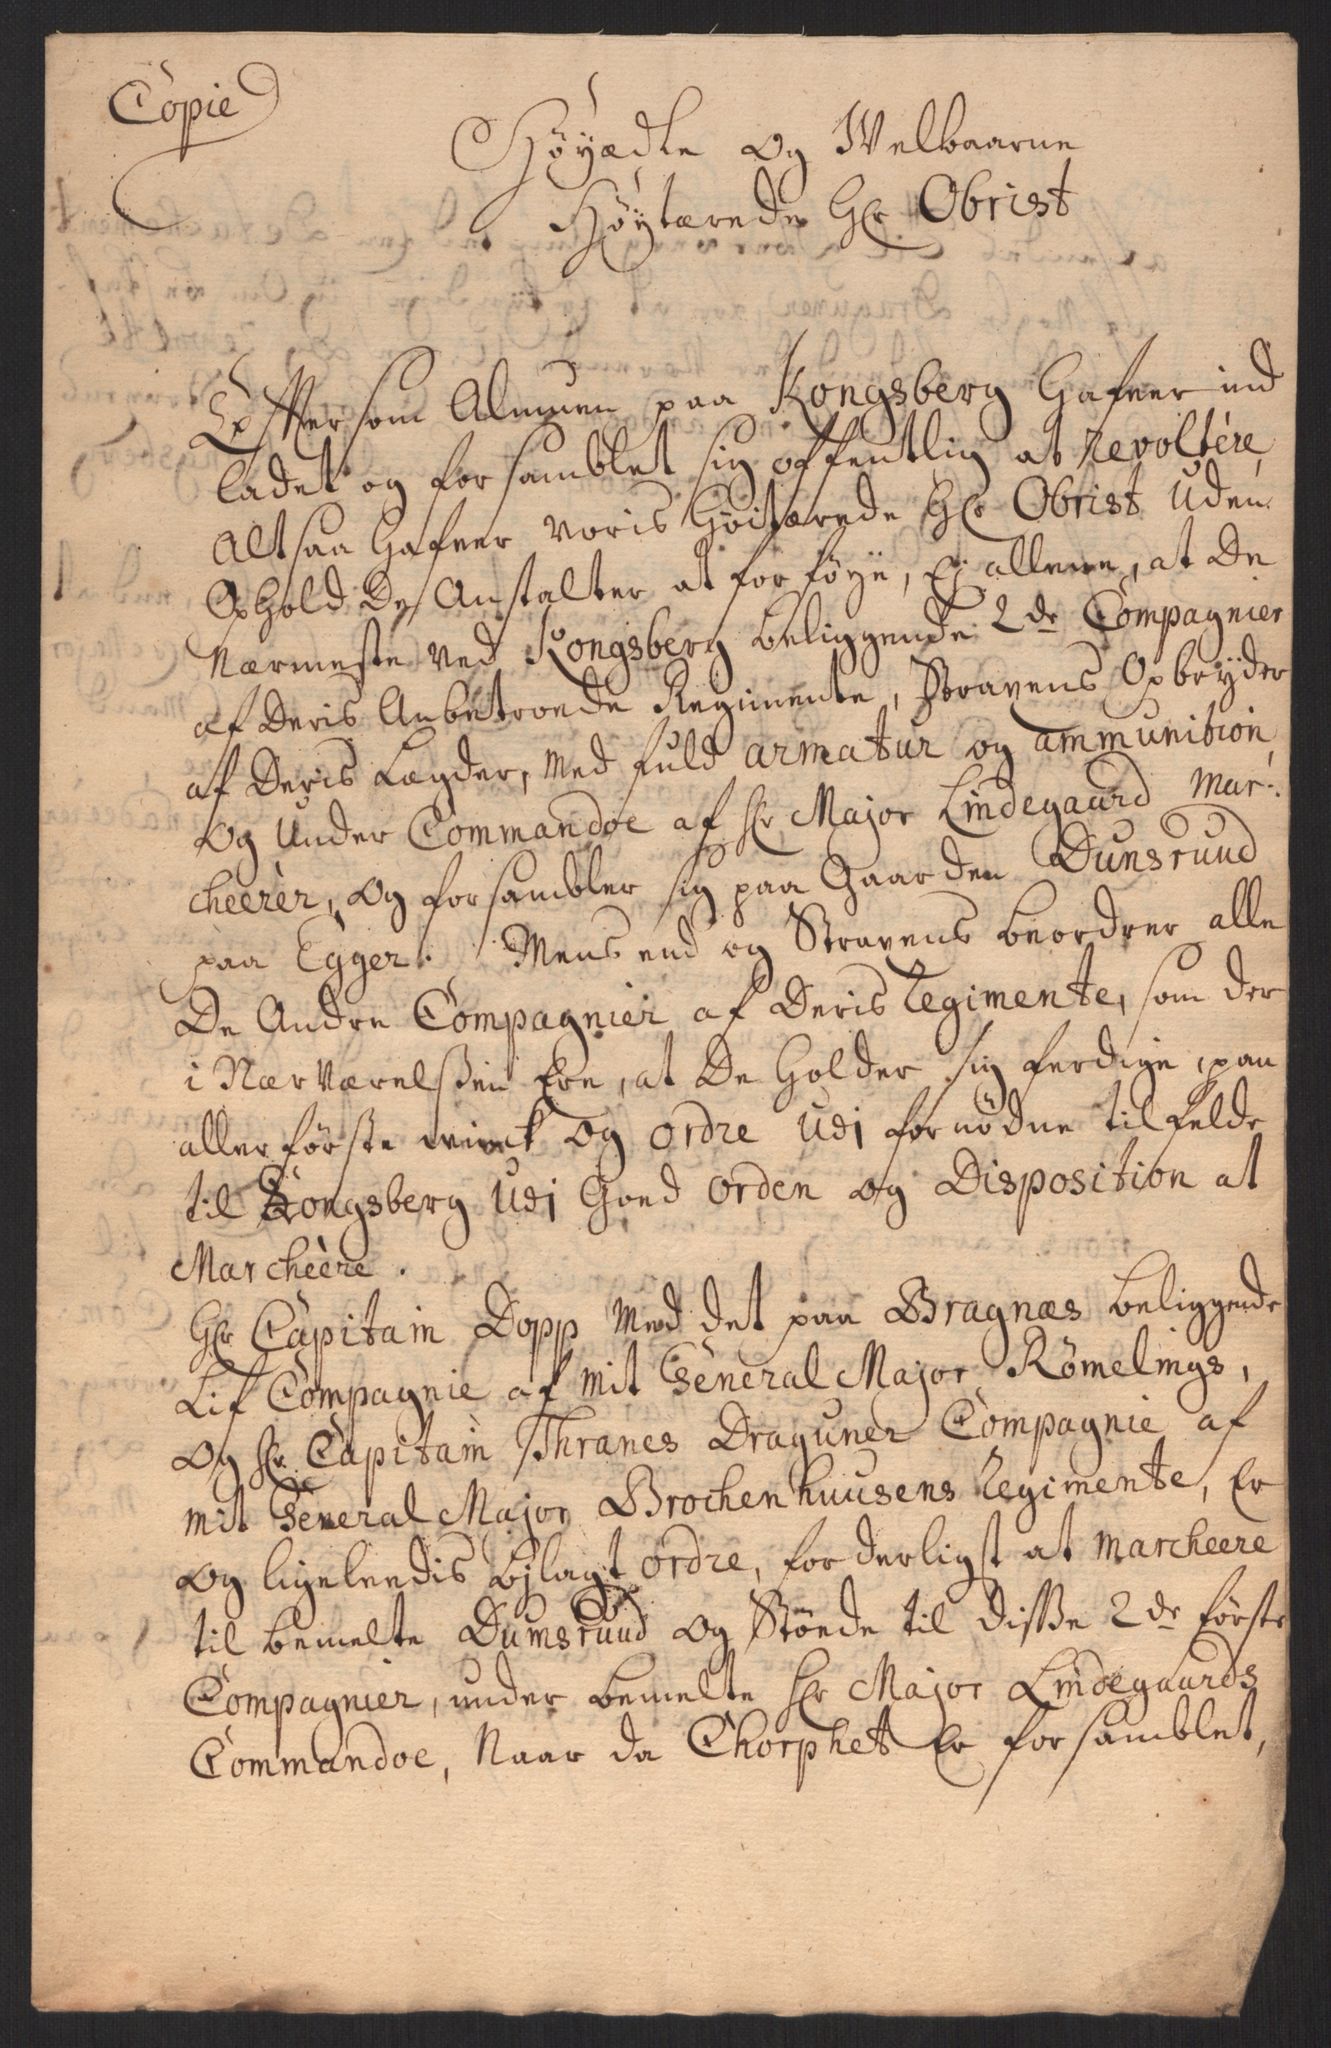 Copie
Høyædle og Welbaarne
Høytærede Hr Obrist
Efftersom Almuen paa Kongsberg hafver ind
ladet og forsamblet sig offentlig at revoltere,
Altsaa hafver voris Høitærede Hr Obrist uden
Ophold De Anstalter at forføye, Ej allene, at De
Nærmeste ved Kongsberg beliggende 2de Compagnier
af Deris Anbetroede Regimente, Stravens Opbryder
af Deris Lægder, med fuld armatur og ammunition,
og under Commandoe af Hr Major Lindegaard mar-
cheerer, og forsambler sig paa Gaarden Dunsruud
paa Egger. Mens end og Stravens beordrer alle
De Andre Compagnier af Deris Regimente, som der
i Nærværelßen Ere, at De holder sig ferdige, paa
allerførste winck og ordre udj fornødne tilfelde
til Kongsberg udj Goed orden og Disposition at
Marcheere.
Hr Capitain Dopp med det paa Bragnæs beliggende
Lif Compagnie af mit General Major Rømelings,
og Hr Capitain Thranes Draguner Compagnie af
mit General Major Brochenhuusens Regimente, Er
og ligeleedis bilagt ordre, forderligst at marcheere
til bemelte Dumsruud og Støede til disße 2de første
Compagnier, under bemelte Hr Major Lindegaards
Commandoe, Naar da Chorphet Er forsamblet,